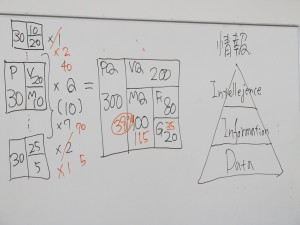 30 10 × 1
20 × 2
40
P V 20 × Q = PQ VQ 200
30 M 10 (10) 300 MQ F 80
× 7 70 39% 100 G 35
165 20
30 25 × 2
5 × 1 5
情報
Intellejence
Information
Data